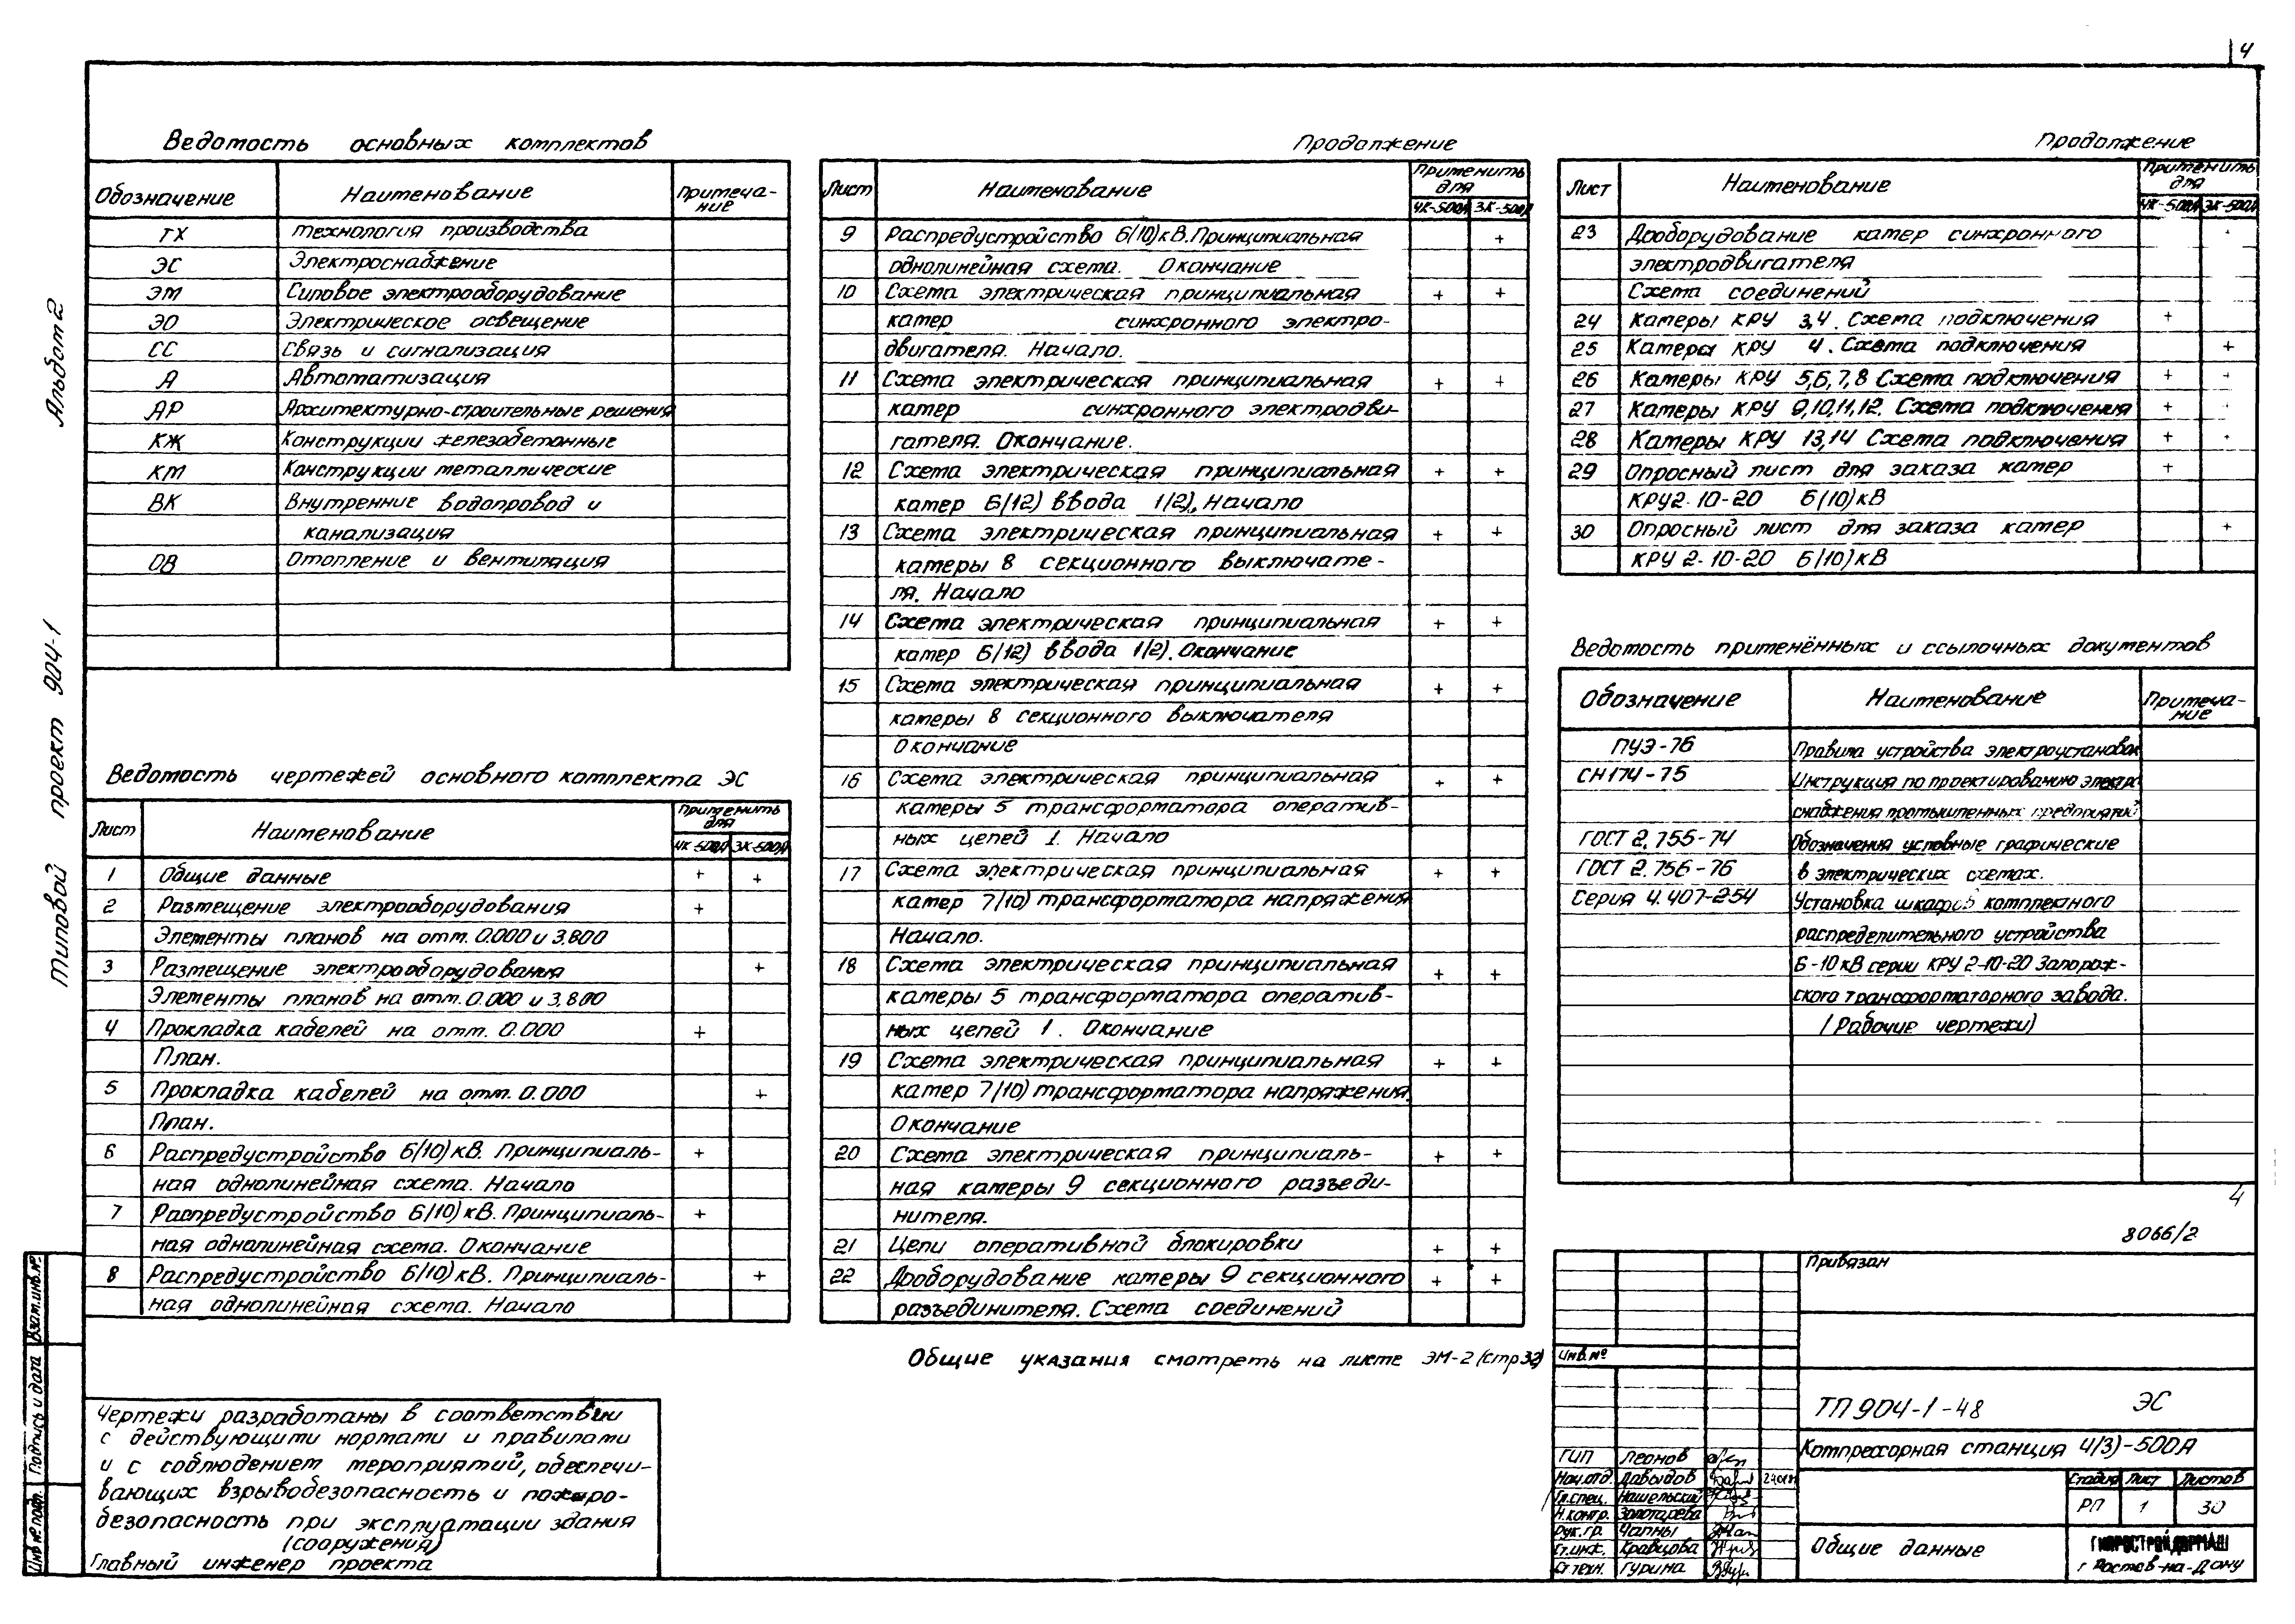 4
Альбом 2
Типовой проект 904-1
Ведомость основных комплектов
Обозначение Наименование Примеча-
ние
ТХ Технология производства
ЭС Электроснабжение
ЭМ Силовое электрооборудование
ЭО Электрическое освещение
СС Связь и сигнализация
А Автоматизация
АР Архитектурно-строительные решения
КЖ Конструкции железобетонные
КМ Конструкции металлические
ВК Внутренние водопровод и
канализация
ОВ Отопление и вентиляция
Ведомость чертежей основного комплекта ЭС
Лист Наименование Применить
для
4К-500А 3К-500А
1 Общие данные + +
2 Размещение электрооборудования +
Элементы планов на отм. 0.000 и 3.800
3 Размещение электрооборудования +
Элементы планов на отм. 0.000 и 3.800
4 Прокладка кабелей на отм. 0.000 +
План.
5 Прокладка кабелей на отм. 0.000 +
План.
6 Распредустройство 6(10)кВ. Принципиаль- +
ная однолинейная схема. Начало
7 Распредустройство 6(10)кВ. Принципиаль- +
ная однолинейная схема. Окончание
8 Распредустройство 6(10)кВ. Принципиаль- +
ная однолинейная схема. Начало
Продолжение
Лист Наименование Применить
для
4К-500А 3К-500А
9 Распредустройство 6(10)кВ. Принципиальная +
однолинейная схема. Окончание
10 Схема электрическая принципиальная + +
камер синхронного электро-
двигателя. Начало.
11 Схема электрическая принципиальная + +
камер синхронного электродви-
гателя. Окончание.
12 Схема электрическая принципиальная + +
камер 6(12) ввода 1(2). Начало
13 Схема электрическая принципиальная + +
камеры 8 секционного выключате-
ля. Начало
14 Схема электрическая принципиальная + +
камер 6(12) ввода 1(2). Окончание
15 Схема электрическая принципиальная + +
камеры 8 секционного выключателя
Окончание
16 Схема электрическая принципиальная + +
камеры 5 трансформатора оператив-
ных цепей 1. Начало
17 Схема электрическая принципиальная + +
камер 7(10) трансформатора напряжения
Начало.
18 Схема электрическая принципиальная + +
камеры 5 трансформатора оператив-
ных цепей 1. Окончание
19 Схема электрическая принципиальная + +
камер 7(10) трансформатора напряжения.
Окончание
20 Схема электрическая принципиаль- + +
ная камеры 9 секционного разъеди-
нителя.
21 Цепи оперативной блокировки + +
22 Дооборудование камеры 9 секционного + +
разъединителя. Схема соединений
Продолжение
Лист Наименование Применить
для
4К-500А 3К-500А
23 Дооборудование камер синхронного +
электродвигателя
Схема соединений
24 Камеры КРУ 3,4. Схема подключения +
25 Камеры КРУ 4. Схема подключения +
26 Камеры КРУ 5,6,7,8 Схема подключения + +
27 Камеры КРУ 9,10,11,12. Схема подключения + +
28 Камеры КРУ 13,14 Схема подключения + +
29 Опросный лист для заказа камер +
КРУ2-10-20 6(10)кВ
30 Опросный лист для заказа камер +
КРУ 2-10-20 6(10)кВ
Ведомость применённых и ссылочных документов
Обозначение Наименование Примеча-
ние
ПУЭ-76 Правила устройства электроустановок
СН174-75 Инструкция по проектированию электро
снабжения промышленных предприятий
ГОСТ 2.755-74 Обозначения условные графические
ГОСТ 2.756-76 в электрических схемах.
Серия 4.407-254 Установка шкафов комплектного
распределительного устройства
6-10 кВ серии КРУ 2-10-20 Запорож-
ского трансформаторного завода.
(Рабочие чертежи)
Общие указания смотреть на листе ЭМ-2 (стр 32)
Чертежи разработаны в соответствии
с действующими нормами и правилами
и с соблюдением мероприятий, обеспечи-
вающих взрывобезопасность и пожаро-
безопасность при эксплуатации здания
(сооружения)
Главный инженер проекта
Взам.инв.№
Подпись и дата
Инв № подл.
4
8066/2
Привязан
Инв.№
ТП 904-1-48 ЭС
Компрессорная станция 4(3)-500А
ГИП Леонов
Нач.отд. Давыдов
Гл.спец. Нашельский
Н.контр. Золотарева
Рук.гр. Чапны
Ст.инж. Кравцова
Ст.техн. Гурина
Стадия Лист Листов
РП 1 30
Общие данные
ГИПРОСТРОЙДОРМАШ
г Ростов-на-Дону